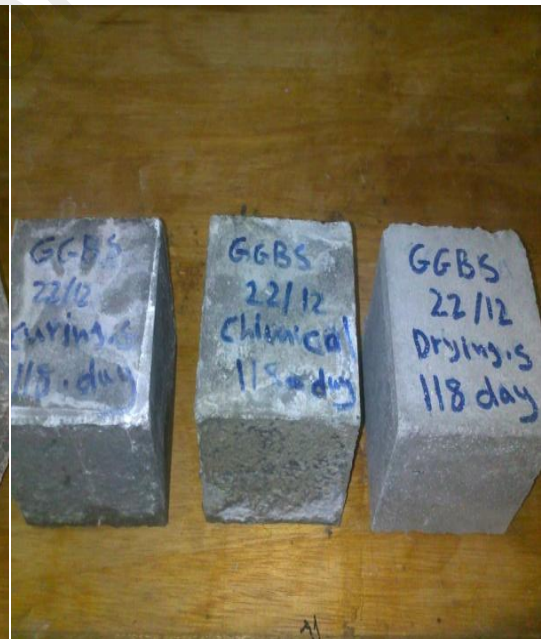 GGBS
22/12
Curing.s
118.day
GGBS
22/12
Chimical
118.day
GGBS
22/12
Drying.s
118 day